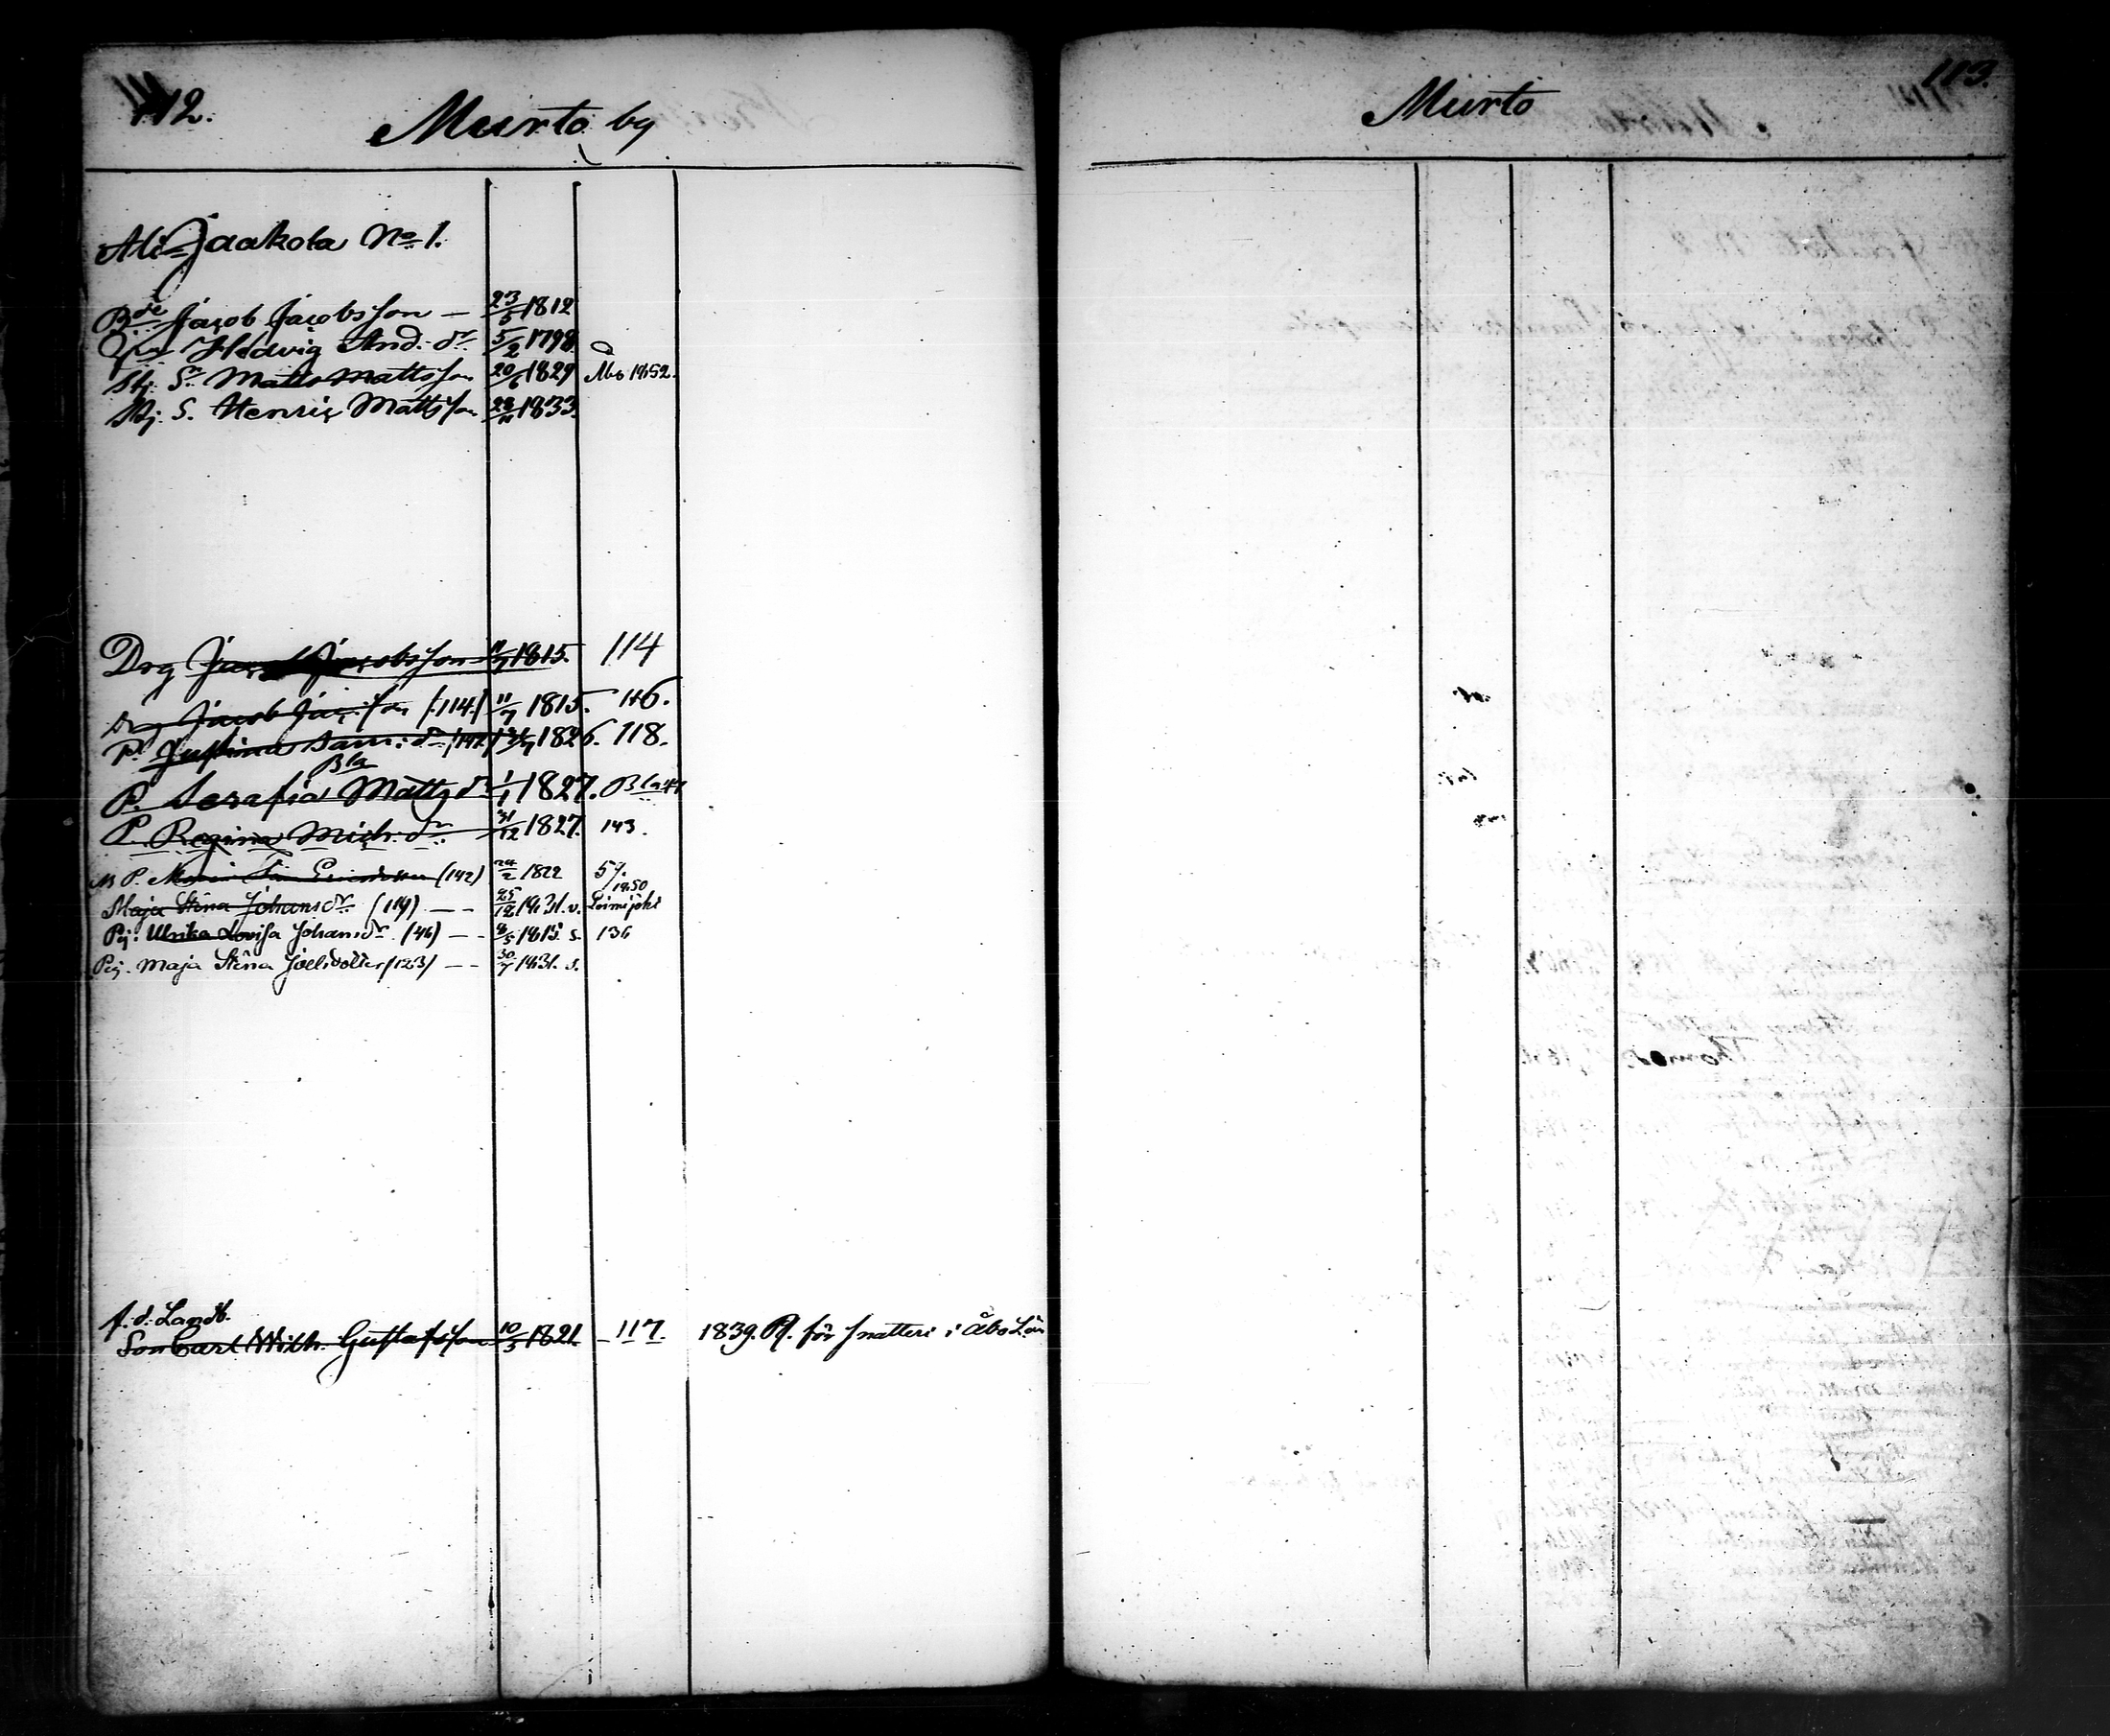 112.
Murto by
Ali-Jaakola No 1.
Bde Jacob Jacobsson — 23/5 1812
Hu Hedvig And. dr. 5/2 1798
Stj. S. Matts Mattsson 20/6 1829 Åbo 1852.
Stj. S. Henric Mattsson 28/11 1833
Drg Jacob Jacobsson 11/7 1815. 114
Drg Jacob Jac:son (:114:) 11/7 1815. 116.
P. Justina Sam: dr 1826. 118.
Bla
P. Serafia Matts dr 1/1 1827. Bla
P. Regina Mich. dr. 31/12 1827. 143.
P. Maria (142) 24/2 1822 57.
1850
Maja Stina Johans dr. (119) — — 25/12 1831. v. Loimijoki
Pij: Ulrika Lovisa Johans dr. (46) — — 8/5 1815. s. 136
Pij. Maja Stina Joelsdotter (123) — — 30/7 1831. s.
f. d. Landb.
Son Carl Wilh. Gustafsson 10/5 1821. 117. 1839. Pl. för snatteri i Åbo Län
113.
Murto